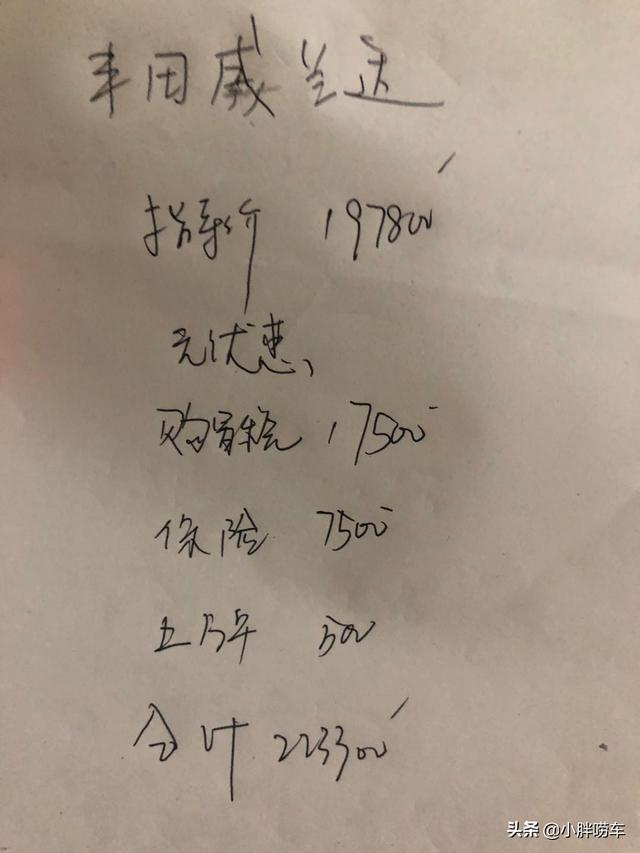 丰田威兰达
指导价 197800
无优惠
购置税 17500
保险 7500
上牌 500
合计 223300
头条 @小胖唠车